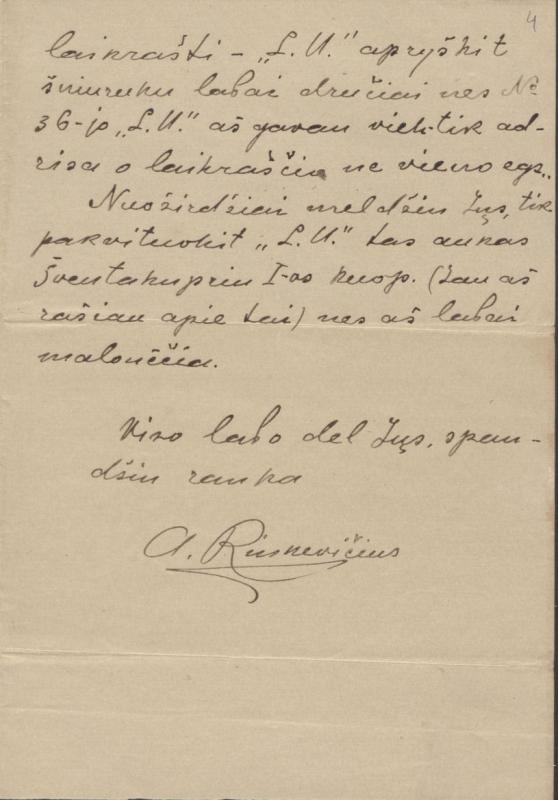 4
laikrašti – „L. U." apryškit
šniuruku labai dručiai nes №
36-jo „L. U." aš gavau viek-tik ad-
risa o laikraščiu ne vieno egz..
Nuoširdžiai meldžiu Jųs, tik
pakvituokit „L. U." tas aukas
Šventakuprių I-os kuop. (Jau aš
rašiau apie tai) nes aš labai
malonėčia.
Viso labo del Jųs, spau-
džiu ranka
A. Rinkevičius